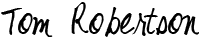 Tom Robertson